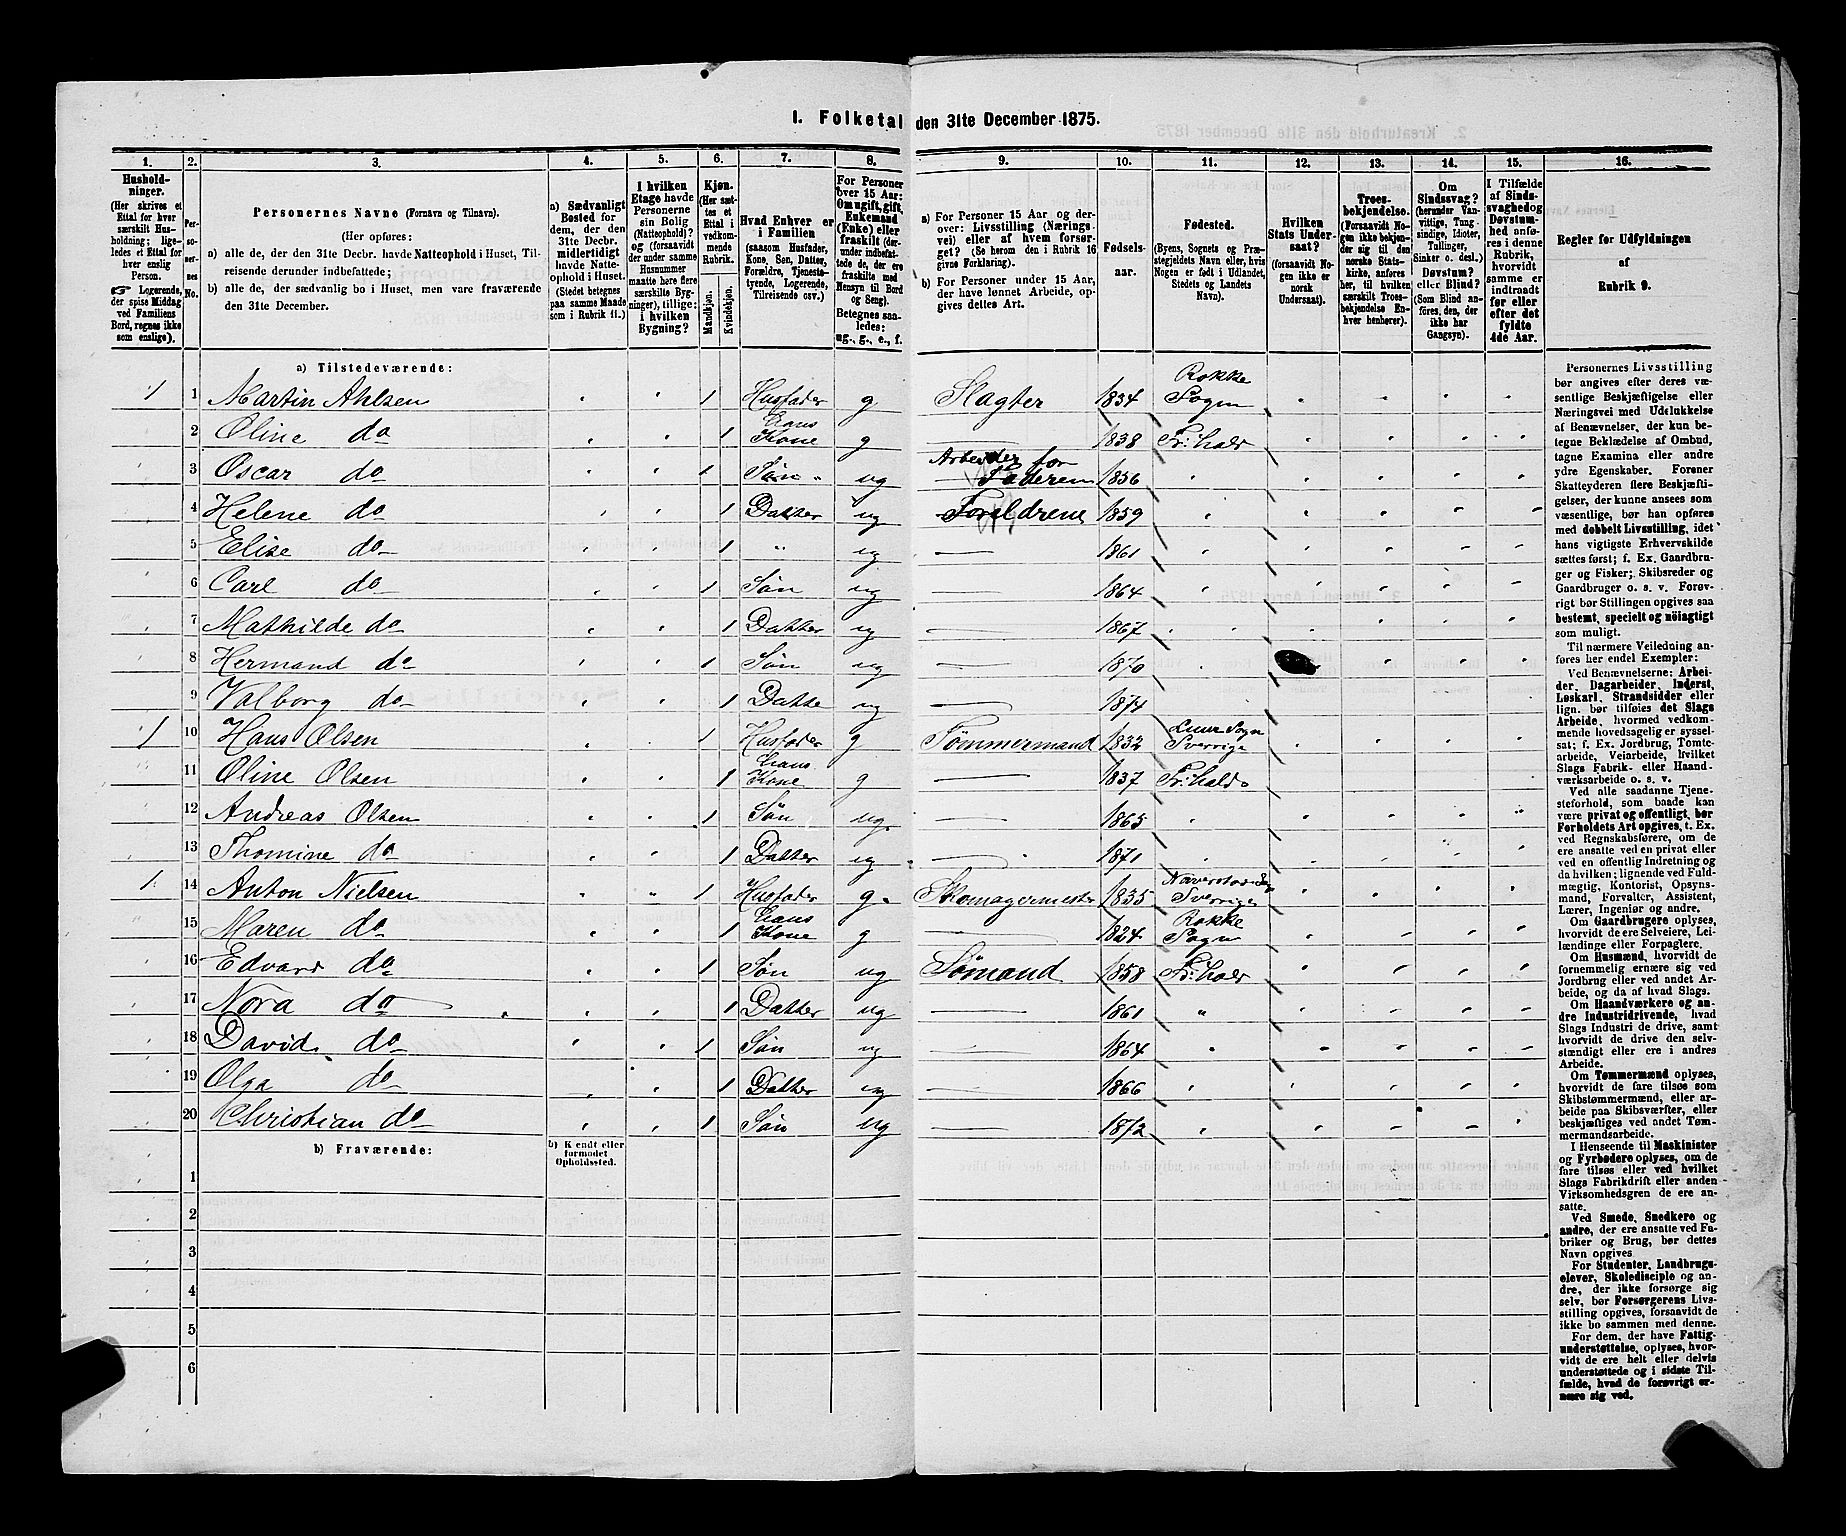 I. Folketal den 31te December 1875.
1. 2. 3. 4. 5. 6. 7. 8. 9. 10. 11. 12. 13. 14. 15. 16.
Hushold-
ninger.
(Her skrives et
Ettal for hver
særskilt Hus-
holdning; lige-
ledes et Ettal for
hver enslig
Person.
☞ Logerende,
der spise Middag
ved Familiens
Bord, regnes ikke
som enslige).
Per-
so-
ner-
nes
No.
Personernes Navne (Fornavn og Tilnavn).
(Her opføres:
a) alle de, der den 31te Decbr. havde Natteophold i Huset, Til-
reisende derunder indbefattede;
b) alle de, der sædvanlig bo i Huset, men vare fraværende
den 31te December.
a) Sædvanligt
Bosted for
dem, der den
31te Decbr.
midlertidigt
havde Natte-
ophold i Huset.
(Stedet betegnes
paa samme Maade
som i Rubrik 11.)
I hvilken
Etage havde
Personerne
sin Bolig
(Natteophold)?
og (forsaavidt
der under samme
Husnummer
maatte høre flere
særskilte Byg-
ninger), tillige:
i hvilken
Bygning?
Kjøn.
(Her sæt-
tes et
Ettal i
vedkom-
mende
Rubrik.
Mandkjøn.
Kvindekjøn.
Hvad Enhver er
i Familien
(saasom Husfader,
Kone, Søn, Datter,
Forældre, Tjeneste-
tyende, Logerende,
Tilreisende osv.)
For Personer
over 15 Aar:
Om ugift, gift,
Enkemand
(Enke) eller
fraskilt (der-
under indbefat-
tede de, der ere
fraskilte med
Hensyn til Bord
og Seng).
Betegnes saa-
ledes:
ug., g., e., f.
a) For Personer 15 Aar og der-
over: Livsstilling (Nærings-
vei) eller af hvem forsør-
get? (Se herom den i Rubrik 16
givne Forklaring).
b) For Personer under 15 Aar,
der have lønnet Arbeide, op-
gives dettes Art.
Fødsels-
aar.
Fødested.
(Byens, Sognets og Præ-
stegjeldets Navn eller, hvis
Nogen er født i Udlandet,
Stedets og Landets
Navn).
Hvilken
Stats Under-
saat?
(forsaavidt No-
gen ikke er
norsk
Undersaat).
Troes-
bekjendelse.
(Forsaavidt No-
gen ikke bekjen-
der sig til den
norske Stats-
kirke, anføres
her, til hvilken
særskilt Troes-
bekjendelse En-
hver henhører).
Om
Sindssvag?
(herunder Van-
vittige, Tung-
sindige, Idioter,
Tullinger,
Sinker o. desl.)
Døvstum?
eller Blind?
(Som Blind an-
føres, den, der
ikke har
Gangsyn).
I Tilfælde
af Sinds-
svaghed og
Døvstum-
hed anfø-
res i denne
Rubrik,
hvorvidt
samme er
indtraadt
før eller
efter det
fyldte
4de Aar.
Regler før Udfyldningen
af
Rubrik 9.
a) Tilstedeværende:
1 1 Martin Ahlsen 1 Husfader g Slagter 1834 Rokke Sogn
2 Oline do 1 hans Kone g 1838 Fr:hald
3 Oscar do 1 Søn ug Arbeider for Faderen 1856
4 Helene do 1 Datter ug Foreldrene 1859
5 Elise do 1 " ug 1861
6 Carl do 1 Søn ug 1864
7 Mathilde do 1 Datter ug 1867
8 Hermand do 1 Søn ug 1870
9 Valborg do 1 Datte ug 1874
1 10 Hans Olsen 1 Husfader g Tømmermand 1832 Sogn Sverrige
11 Oline Olsen 1 hans Kone g 1837 Fr:hald
12 Andreas Olsen 1 Søn ug. 1865
13 Thomine do 1 Datter ug 1871
1 14 Anton Nielsen 1 Husfader g. Skomagermester 1835 Sverrige
15 Maren do 1 hans Kone g 1824 Rokke Sogn
16 Edvard do 1 Søn ug Sømand 1858 Fr:hald
17 Nora do 1 Datter ug 1861 "
18 David do 1 Søn ug 1864
19 Olga do 1 Datter ug 1866
20 Christian do 1 Søn ug 1872
b) Fraværende:
b) Kjendt eller
formodet
Opholdssted.
1
2
3
4
5
6
Personernes Livsstilling
bør angives efter deres væ-
sentlige Beskjæftigelse eller
Næringsvei med Udelukkelse
af Benævnelser, der kun be-
tegne Beklædelse af Ombud,
tagne Examina eller andre
ydre Egenskaber. Forener
Skatteyderen flere Beskjæfti-
gelser, der kunne ansees som
væsentlige, bør han opføres
med dobbelt Livsstilling, idet
hans vigtigste Erhvervskilde
sættes først; f. Ex. Gaardbru-
ger og Fisker; Skibsreder og
Gaardbruger o. s. v. Forøv-
rigt bør Stillingen opgives saa
bestemt, specielt og nöiagtigt
som muligt.
Til nærmere Veiledning an-
føres her endel Exempler:
Ved Benævnelserne: Arbei-
der, Dagarbeider, Inderst,
Løskarl, Strandsidder eller
lign. bør tilføies det Slags
Arbeide, hvormed vedkom-
mende hovedsagelig er syssel-
sat; f. Ex. Jordbrug, Tomte-
arbeide, Veiarbeide, hvilket
Slags Fabrik- eller Haand-
værksarbeide o. s. v.
Ved alle saadanne Tjene-
steforhold, som baade kan
være privat og offentligt, bør
Forholdets Art opgives, t. Ex.
ved Regnskabsførere, om de
ere ansatte ved en privat eller
ved en offentlig Indretning og
da hvilken; lignende ved Fuld-
mægtig, Kontorist, Opsyns-
mand, Forvalter, Assistent,
Lærer, Ingeniør og andre.
Om Gaardbrugere oplyses,
hvorvidt de ere Selveiere, Lei-
lændinge eller Forpagtere.
Om Husmænd, hvorvidt de
fornemmelig ernære sig ved
Jordbrug eller ved andet Ar-
beide, og da af hvad Slags.
Om Haandværkere og an-
dre Industridrivende, hvad
Slags Industri de drive, samt
hvorvidt de drive den selv-
stændigt eller ere i andres
Arbeide.
Om Tømmermænd oplyses,
hvorvidt de fare tilsøs som
Skibstømmermænd, eller ar-
beide paa Skibsværfter, eller
beskjæftiges ved andet Tøm-
mermandsarbeide.
I Henseende til Maskinister
og Fyrbødere oplyses, om de
fare tilsøs eller ved hvilket
Slags Fabrikdrift eller anden
Virksomhedsgren de ere an-
satte.
Ved Smede, Snedkere og
andre, der ere ansatte ved Fa-
briker og Brug, bør dettes
Navn opgives
For Studenter, Landbrugs-
elever, Skoledisciple og an-
dre, der ikke forsørge sig
selv, bør Forsørgerens Livs-
stilling opgives, forsaavidt de
ikke bo sammen med denne.
For dem, der have Fattig-
understøttelse, oplyses, hvor-
vidt de ere helt eller delvis
understøttede og i sidste Til-
fælde, hvad de forøvrigt er-
nære sig ved.